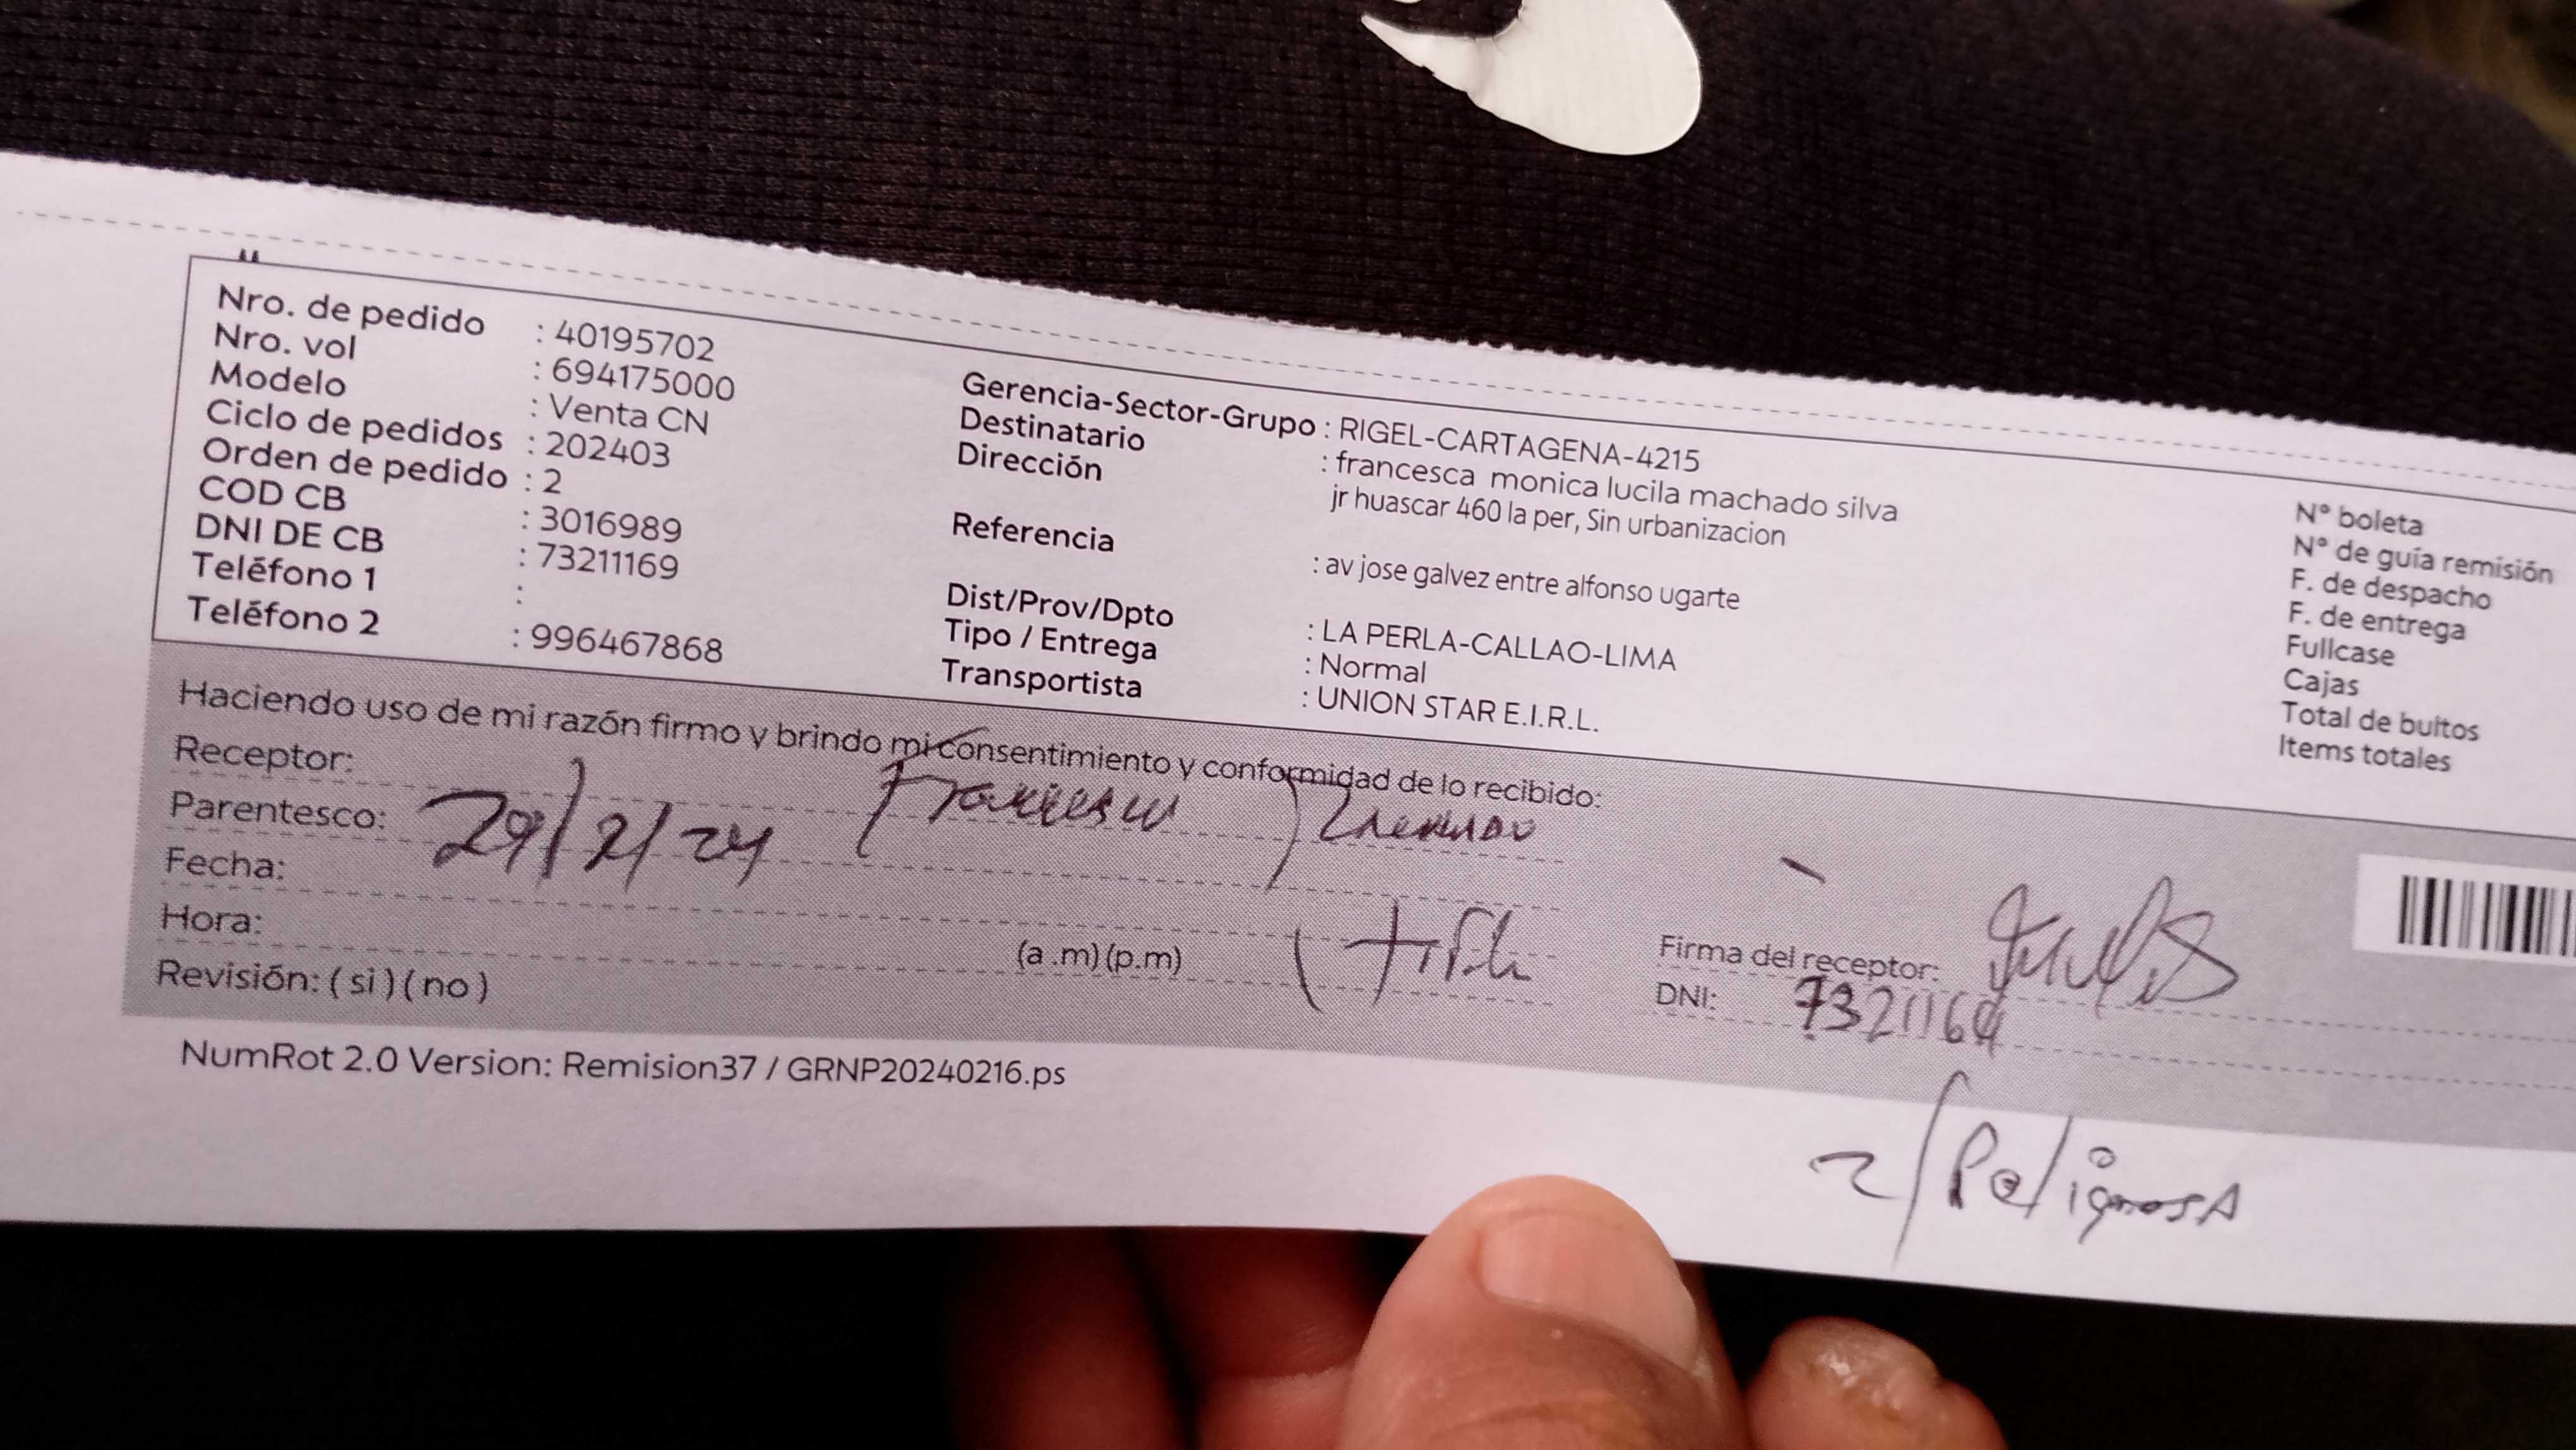 Nro. de pedido : 40195702
Nro. vol : 694175000
Modelo : Venta CN
Ciclo de pedidos : 202403
Orden de pedido : 2
COD CB : 3016989
DNI DE CB : 73211169
Teléfono 1 :
Teléfono 2 : 996467868
Gerencia-Sector-Grupo : RIGEL-CARTAGENA-4215
Destinatario : francesca monica lucila machado silva
Dirección jr huascar 460 la per, Sin urbanizacion
Referencia : av jose galvez entre alfonso ugarte
Dist/Prov/Dpto : LA PERLA-CALLAO-LIMA
Tipo / Entrega : Normal
Transportista : UNION STAR E.I.R.L.
N° boleta
N° de guía remisión
F. de despacho
F. de entrega
Fullcase
Cajas
Total de bultos
Items totales
Haciendo uso de mi razón firmo y brindo mi consentimiento y conformidad de lo recibido:
Receptor:
Parentesco: 29/2/24
Fecha:
Hora: (a .m)(p.m)
Revisión: ( si ) ( no )
Firma del receptor:
DNI:
NumRot 2.0 Version: Remision37 / GRNP20240216.ps
z/PeligrosA